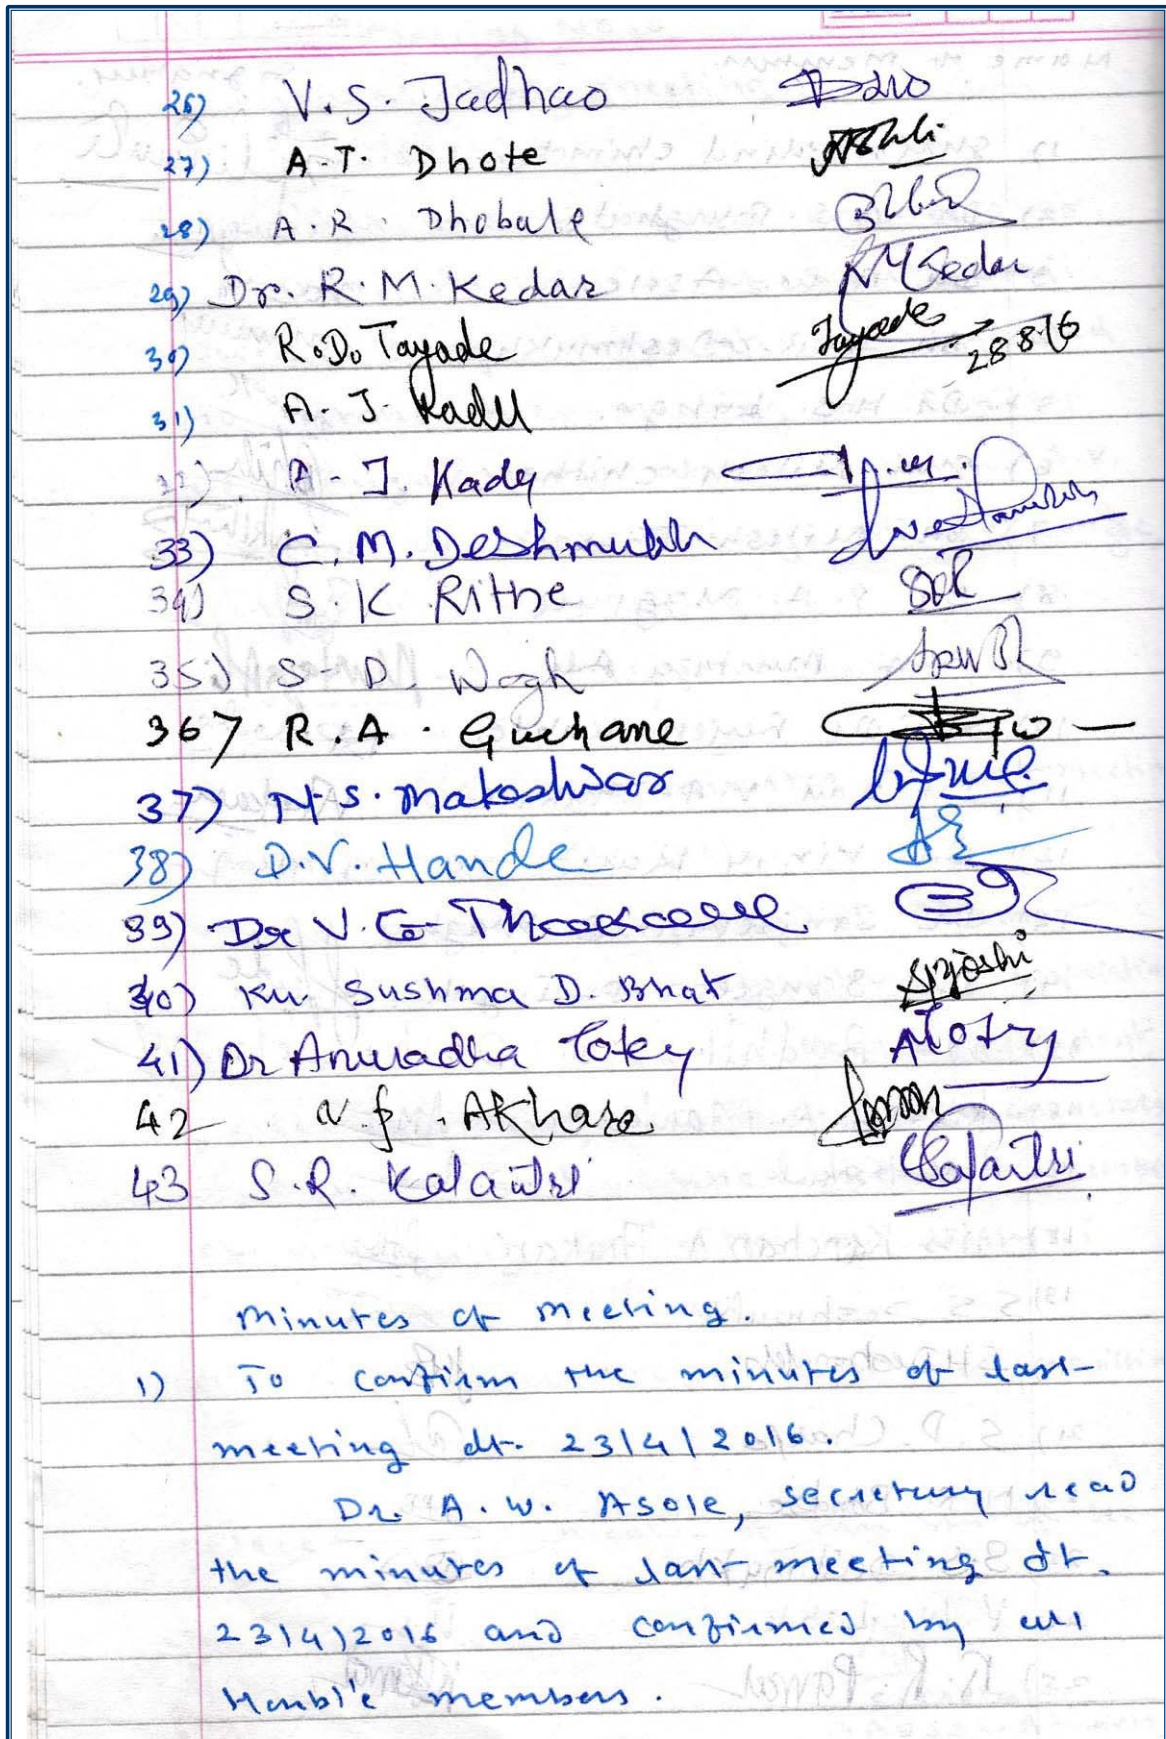 26) V. S. Jadhao
27) A. T. Dhote
28) A. R. Dhobale
29) Dr. R. M. Kedar RMKedar
30) R. D. Tayade Tayade 28 8 16
31) A. J. Kadu
32) A. J. Kady
33) C. M. Deshmukh
34) S. K Rithe
35) S. D. Wagh
36) R. A. Guchane
37) N. S. Makeshwar
38) D. V. Hande
39) Dr V. G. Thackare
40) Ku. Sushma D. Bhat
41) Dr Anuradha Totey ATotey
42 N. P. Akhare
43 S. R. Kalaitri Kalaitri
Minutes of meeting.
1) To confirm the minutes of last
meeting dt. 23/4/2016.
Dr. A. W. Asole, secretary read
the minutes of last meeting dt.
23/4/2016 and confirmed by all
Honble members.